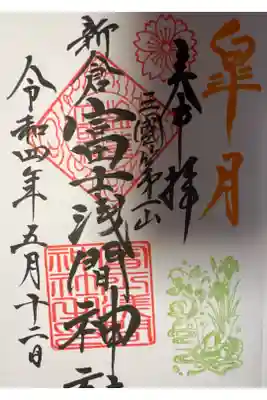 皐月
奉拝
三國第一山
新倉富士浅間神社
令和四年五月十二日